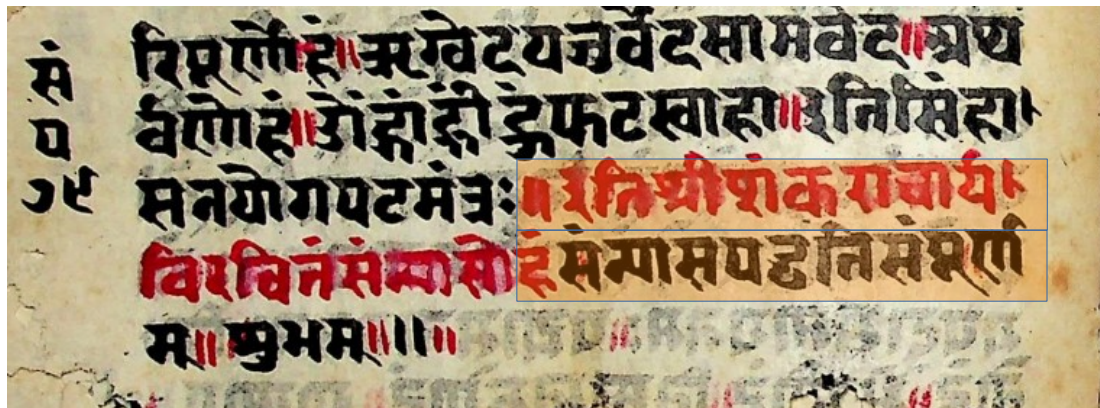 सं
प
७९
रिपूर्णोहं॥ऋग्वेदयजुर्वेदसामवेद॥अथ
र्वणोहं॥ओंह्रांह्रींह्रूंफटस्वाहा॥इतिसिंहा
सनयोगपटमंत्रः॥इतिश्रीशंकराचार्य
विरचितंसंन्यासोहंसंन्यासपद्धतिसंपूर्ण
म्॥शुभम्॥॥॥